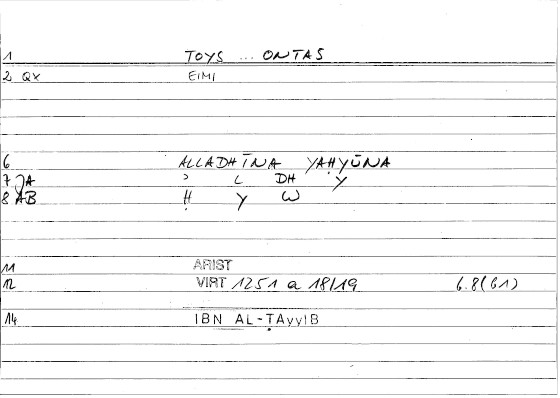 1 TOYS ... ONTAS
2 QX EIMI
6 ALLADHĪNA YAḤYŪNA
7 JA ʾ L DH Y
8 AB Ḥ Y W
11 ARIST
12 VIRT 1251 a 18/19 6.8(61)
14 IBN AL-ṬAyyIB